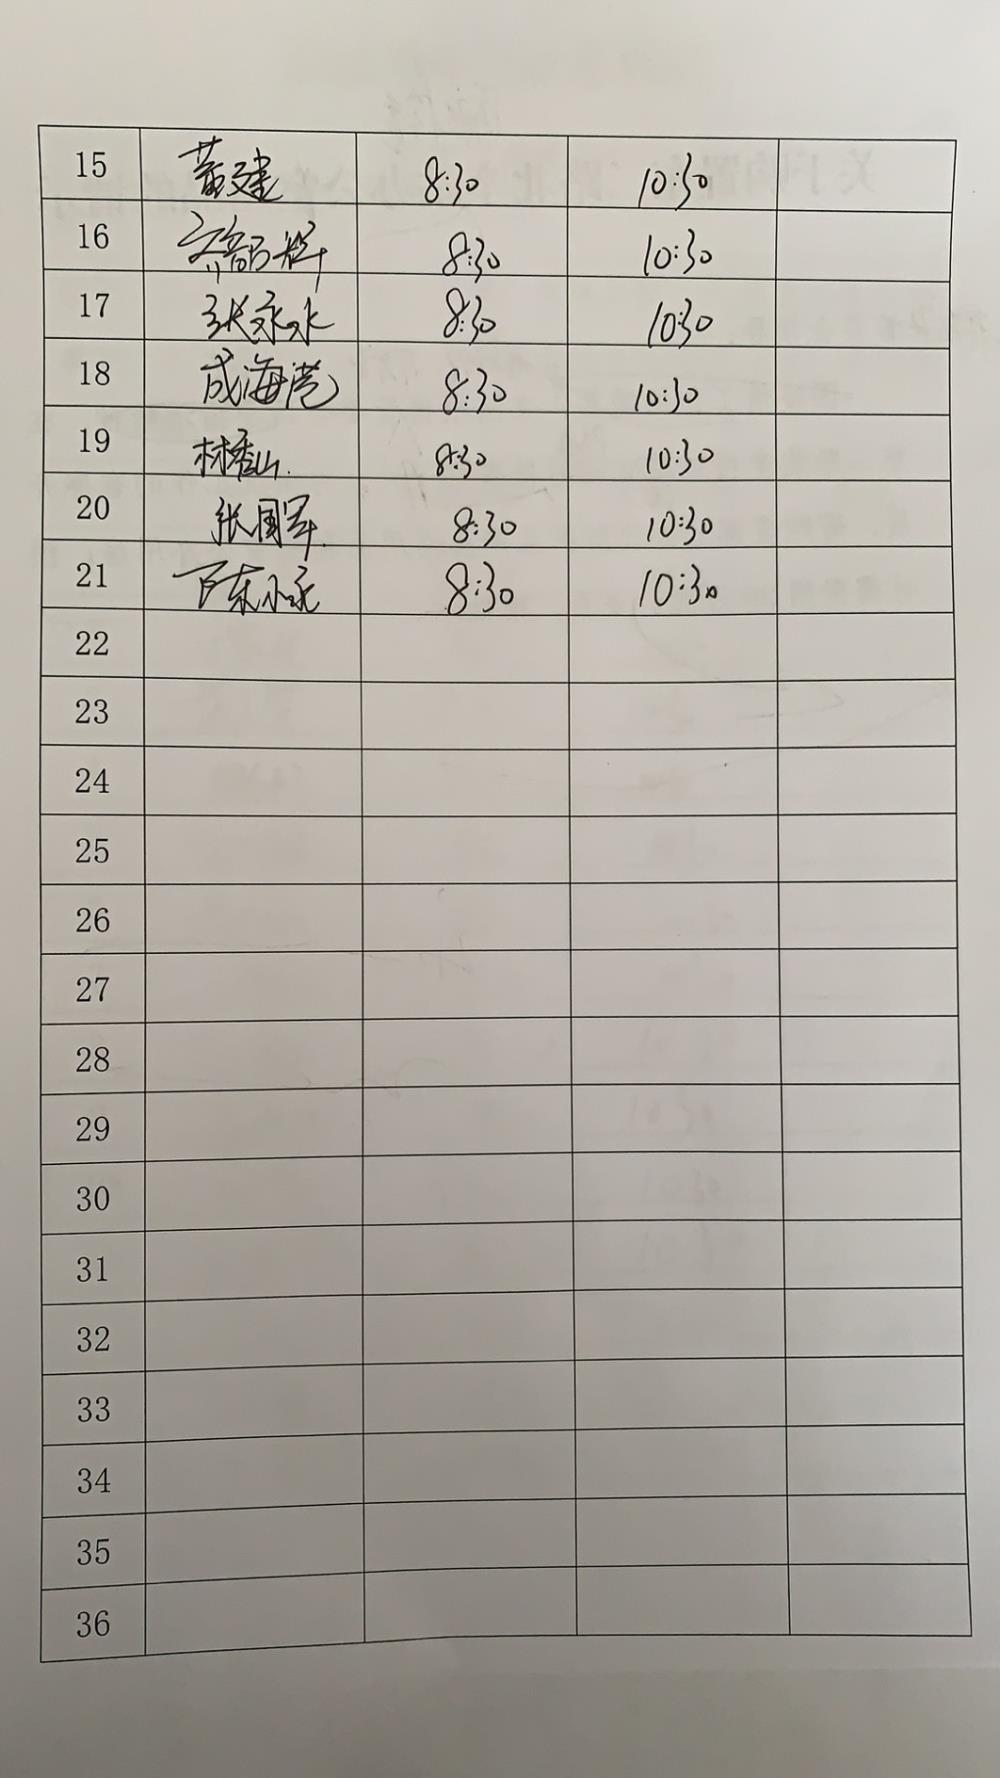 15 黄建 8:30 10:30
16 8:30 10:30
17 张永水 8:30 10:30
18 成海港 8:30 10:30
19 林秀山 8:30 10:30
20 张国军 8:30 10:30
21 8:30 10:30
22
23
24
25
26
27
28
29
30
31
32
33
34
35
36